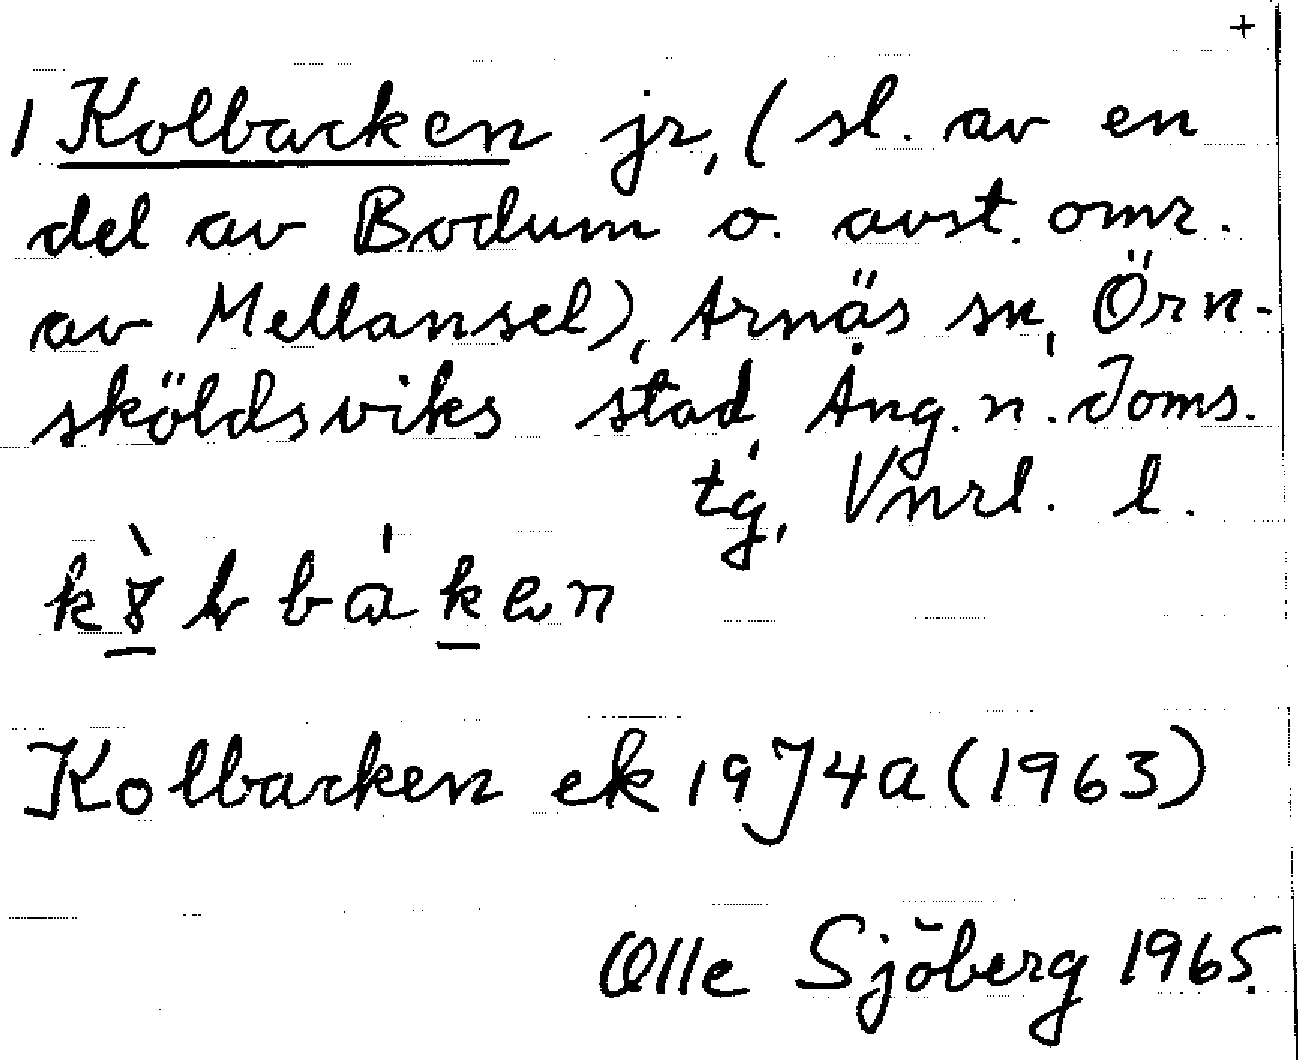 +
1 Kolbacken jr, (sl. av en
del av Bodum o. avst. omr.
av Mellansel), Arnäs sn, Örn-
sköldsviks stad, Ång. n. Doms.
tg, Vnrl. l.
Kolbacken ek 19J4a (1963)
Olle Sjöberg 1965.